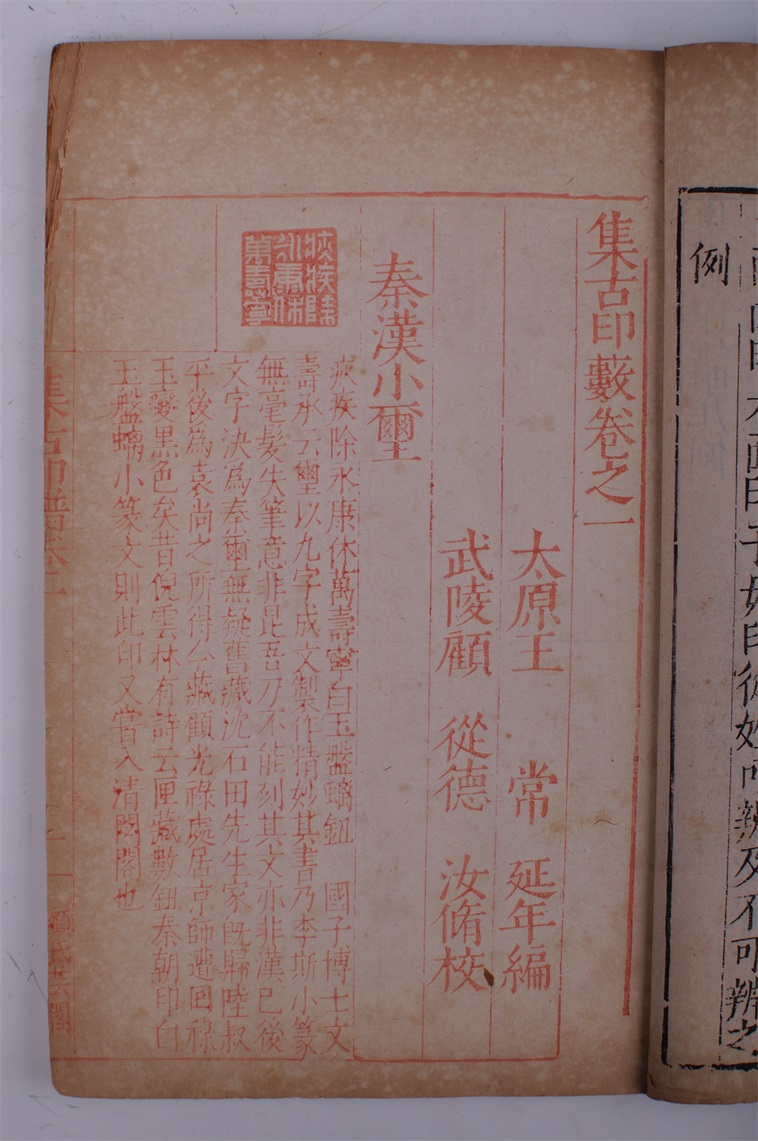 面印子母印從妙可辨及不可辨之
例
集古印藪卷之一
太原王 常 延年編
武陵顧 從德 汝脩校
秦漢小璽
疢疾除永康休萬壽寧
疢疾除永康休萬壽寧白玉盤螭鈕 國子博士文
壽承云璽以九字成文製作精妙其書乃李斯小篆
無毫髮失筆意非昆吾刀不能刻其文亦非漢已後
文字決為秦璽無疑舊藏沈石田先生家既歸陸叔
平後為袁尚之所得今藏顧光祿處居京師遭回祿
玉變黑色矣昔倪雲林有詩云匣藏數鈕秦朝印白
玉盤螭小篆文則此印又嘗入清閟閣也
集古印譜卷
顧氏芸閣